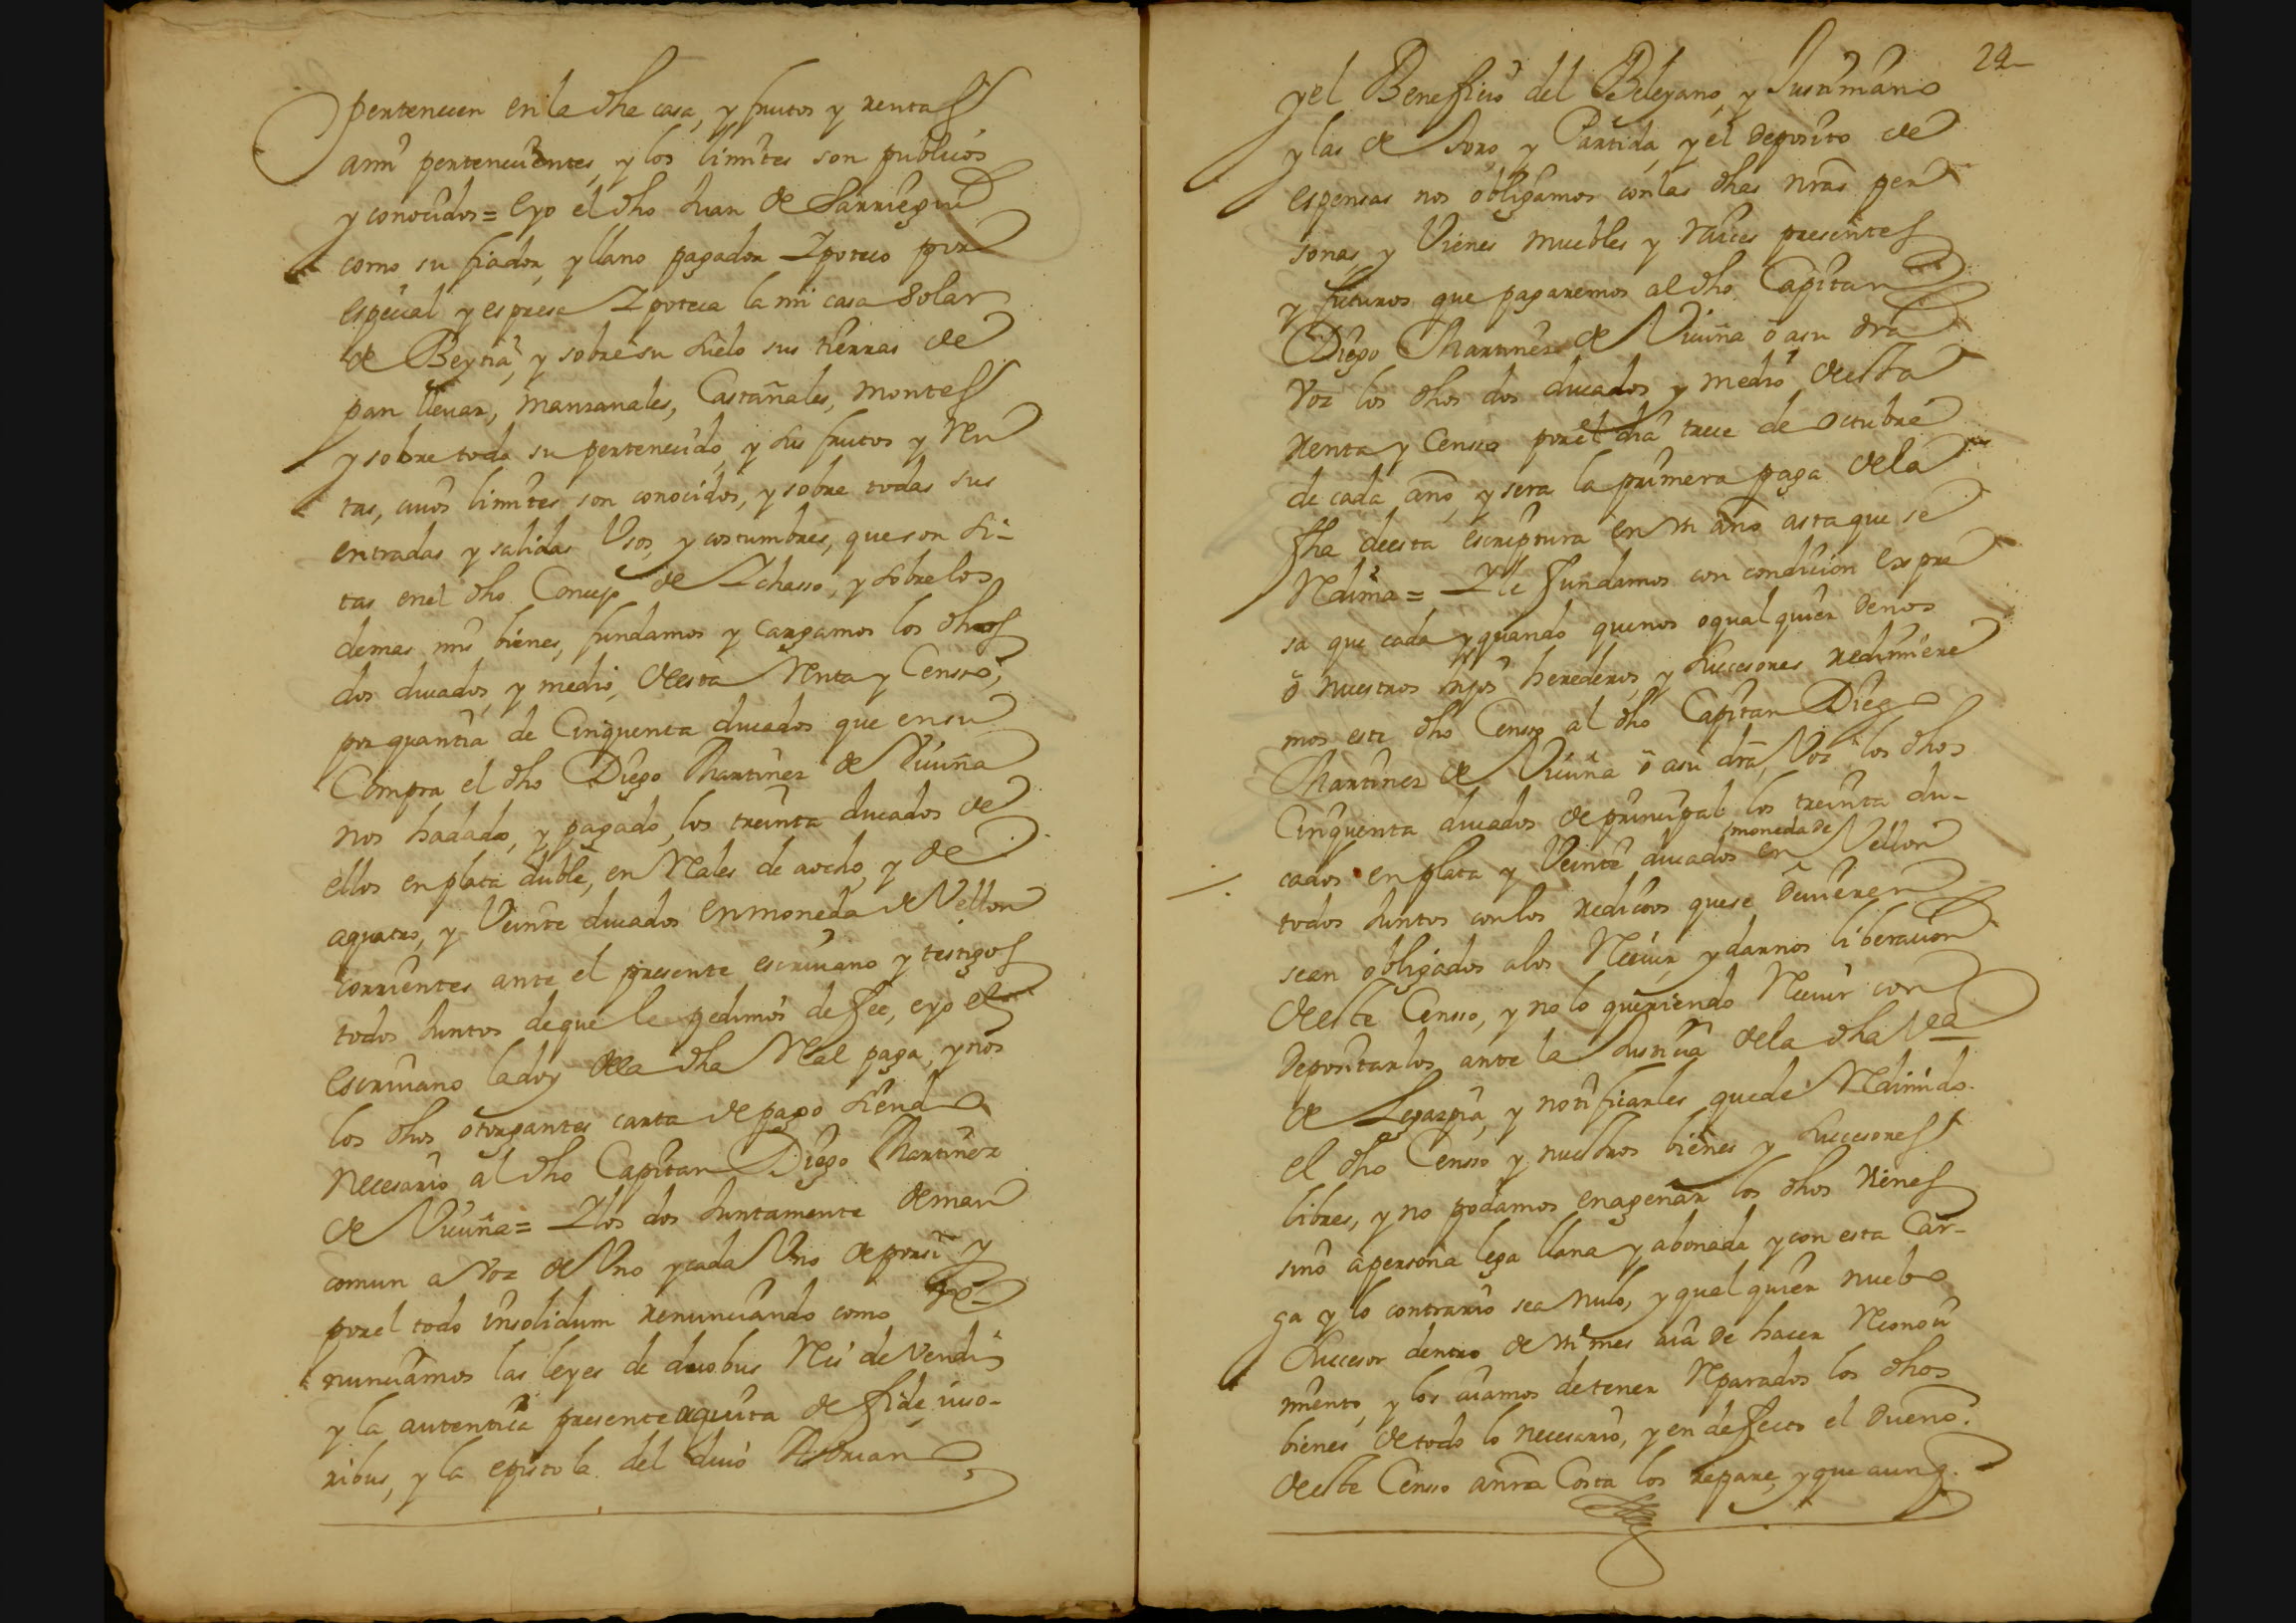 pertenecen en la dha casa, y frutos y rentas
ami pertenecientes, y los limites son publicos
y conocidos = eyo el dho Juan de Sarriegui
como su fiador, y llano pagador Ipoteco por
especial y espresa Ipoteca la mi casa Solar
de Beytia, y sobre su suelo sus tierras de
pan lleuar, manzanales, Castañales, montes
y sobre todo su pertenecido, y sus frutos y Ren
tas, cuios limites son conocidos, y sobre todas sus
entradas y salidas Vsos, y costumbres, que son si-
tas enel dho Concejo de Ichasso, y sobre los
demas mis bienes, fundamos y cargamos los dhos
dos ducados, y medio, desta Renta y Censso,
por quantia de Cinquenta ducados que en su
Compra el dho Diego Martinez de Vicuña
nos hadado, y pagado, los treinta ducados de
ellos en plata duble, en Reales de aocho, y de
aquatro, y Veinte ducados en moneda de Vellon
corrientes ante el presente escriuano y testigos
todos Juntos deque le pedimos de fee, eyo el
escriuano la doy dela dha Real paga, y nos
los dhos otorgantes carta de pago siendo
Necesario al dho Capitan Diego Martinez
de Vicuña = Ilos dos Juntamente de man
comun a voz de Vno y cada Vno de por si y
por el todo insolidum renunciando como Re-
nunciamos las leyes de duobus Reis de vendi
y la autentica presente oquita de fide iuso-
ribus, y la epistola del diuo Adriano
24
y el Beneficio del Beleyano, y Justimano
y las de Foro y Partida, y el Deposito de
espensas nos obligamos con las dhas nras per
sonas, y Vienes muebles y raices presentes
y futuros que pagaremos al dho Capitan
Diego Martinez de Vicuña ō asu dra
voz los dhos dos ducados y medio desta
renta y Censso por el dia trece de octubre
de cada año, y sera la primera paga dela
fha deesta escriptura en vn año asta que se
Redima = I le fundamos con condicion Expre
sa que cada y quando que nos o qual quier de nos
ō nuestros hijos herederos, y subcesores redimiere
mos este dho Censso al dho Capitan Diego
Martinez de Vicuña ō asu dra voz los dhos
Cinquenta ducados de principal los treinta du-
cados en plata y Veinte ducados en moneda de Vellon
todos Juntos con los reditos que se deuieren
sean obligados alos Reciuir, y darnos liberacion
deeste Censso, y no lo queriendo Reciuir con
Depositarlos ante la Justicia dela dha Va
de Legazpia, y notificarles quede Redimido
el dho Censso y nuestros bienes y subcesores
libres, y no podamos enagenar los dhos vienes
sino apersona lega llana y abonada y con esta Car-
ga y lo contrario sea nulo, y qual quier nuebo
subcesor dentro de vn mes aia de hacer Reconoci
miento, y los aiamos de tener Reparados los dhos
bienes de todo lo necesario, y en defecto el dueño
deeste Censso anra Costa los repare, y que aunq.